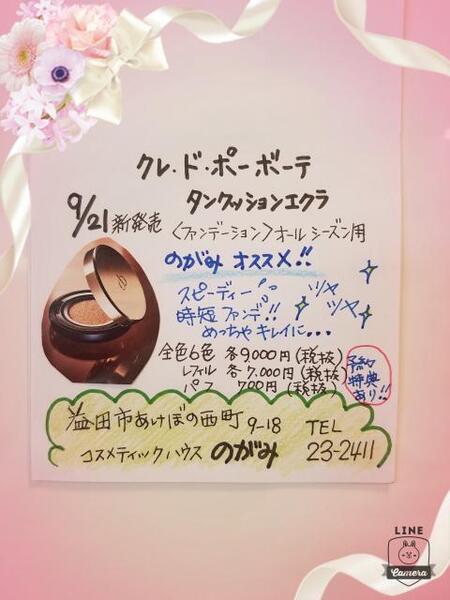 クレ・ド・ポーボーテ
タンクッションエクラ
9/21新発売
〈ファンデーション〉オールシーズン用
のがみ オススメ!!
スピーディー
ツヤ
ツヤ
時短ファンデ!!
めっちゃキレイに...
全色6色 各9,000円(税抜)
レフィル 各7,000円(税抜)
パフ 700円(税抜)
予約
特典
あり!!
益田市あけぼの西町9-18
TEL
コスメティックハウス のがみ
23-2411
LINE
Camera